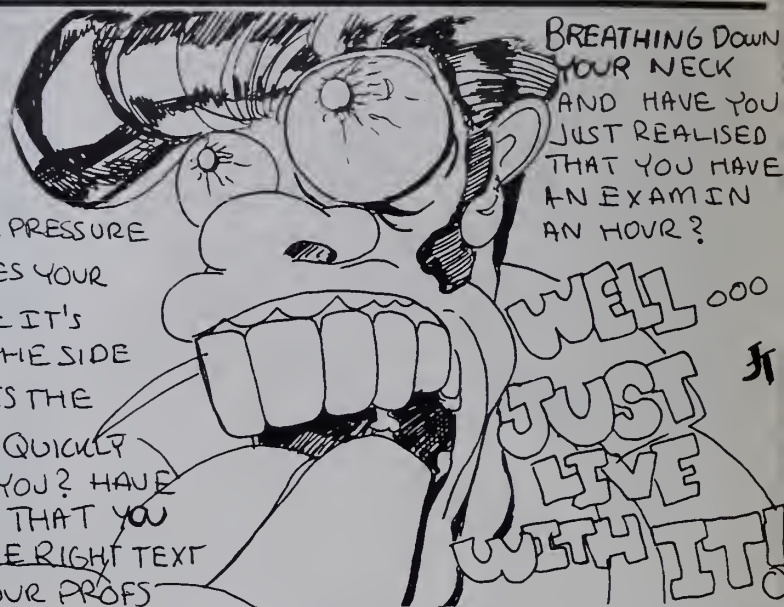 PRESSURE
YOUR
IT'S
THE SIDE
THE
QUICKLY
YOU? HAVE
THAT YOU
RIGHT TEXT
PROFS
BREATHING DOWN
YOUR NECK
AND HAVE YOU
JUST REALISED
THAT YOU HAVE
AN EXAM IN
AN HOUR?
WELL...
JUST
LIVE
WITH IT!
JT